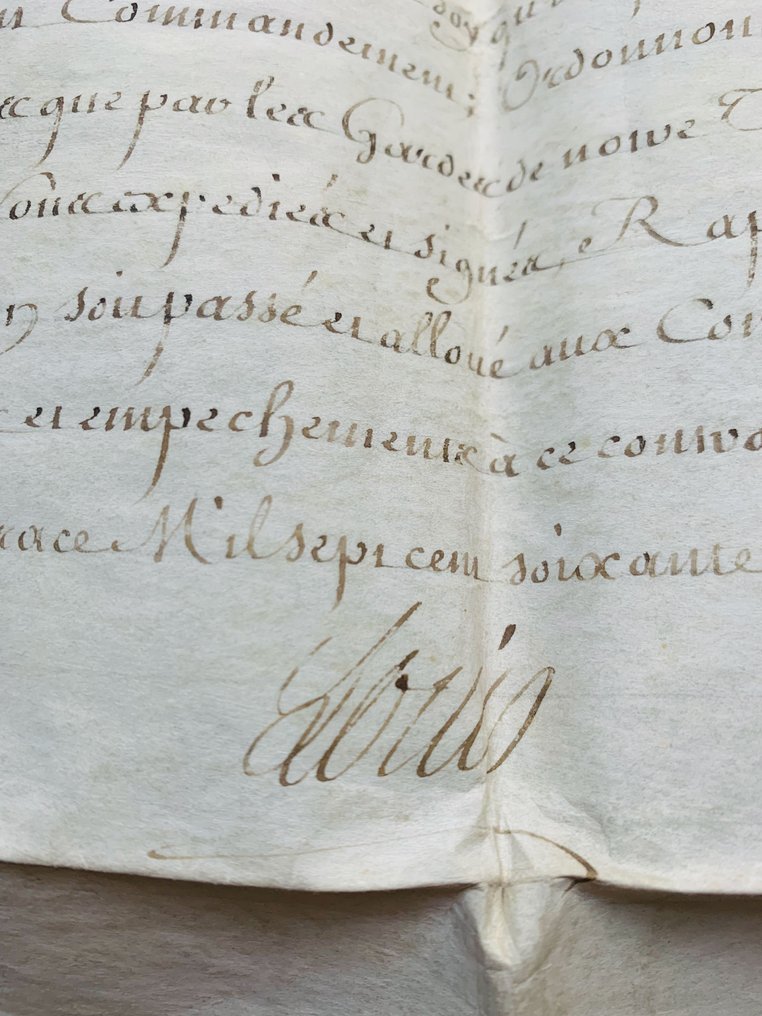 Commandement; Ordonnon
que par les Gardes de notre
expediés et signés, Rap
soit passé et alloué aux Com
et empechemens à ce contra
race Mil sept cent soixante
Louis